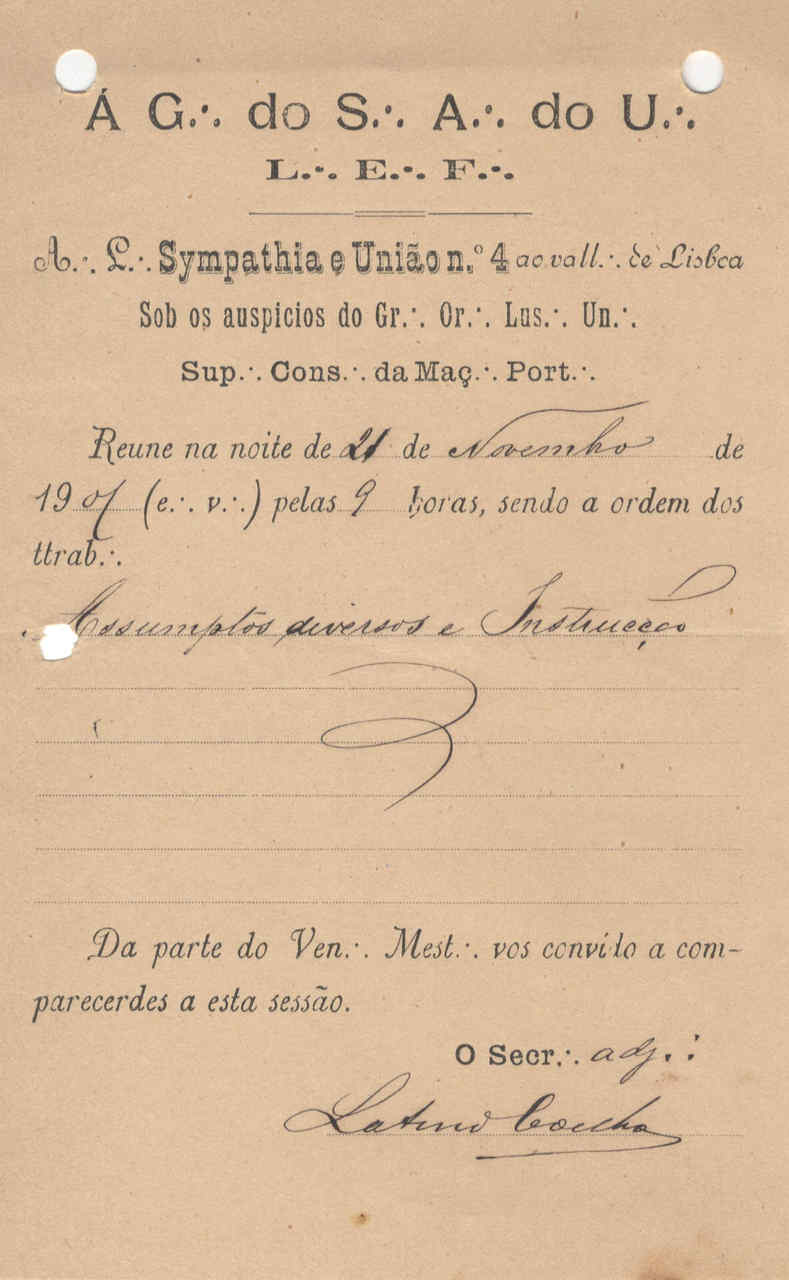 Á G.·. do S.·. A.·. do U.·.
L.·. E.·. F.·.
A.·. L.·. Sympathia e União n.º 4 ao vall.·. de Lisboa
Sob os auspicios do Gr.·. Or.·. Lus.·. Un.·.
Sup.·. Cons.·. da Maç.·. Port.·.
Reune na noite de 21 de Novembro de
190 (e.·. v.·.) pelas 9 horas, sendo a ordem dos
ttrab.·.
Assumptos diversos e Instrucção
Da parte do Ven.·. Mest.·. vos convido a com-
parecerdes a esta sessão.
O Secr.·. adj.·.
Latino Coelho